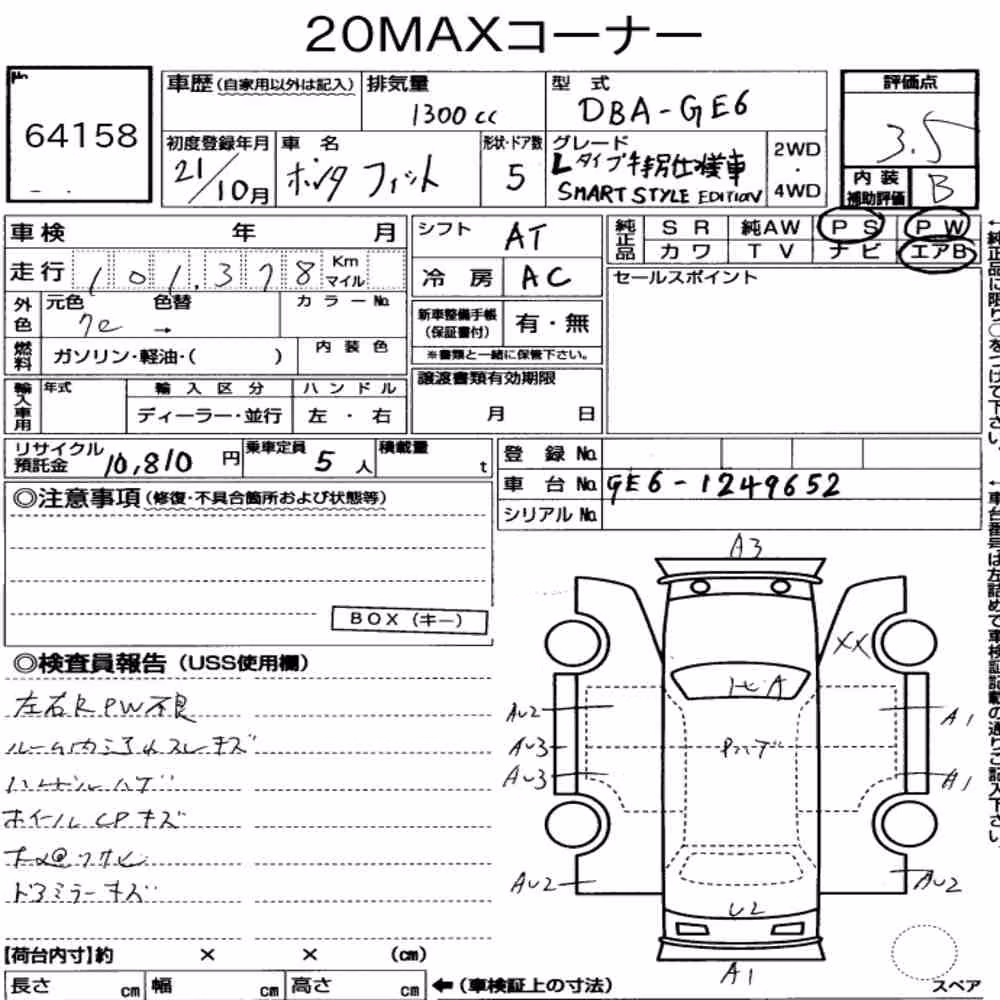 20MAXコーナー
No
64158
車歴(自家用以外は記入)
排気量
1300cc
型式
DBA-GE6
評価点
3.5
初度登録年月
21/10月
車名
ホンダ フィット
形状・ドア数
5
グレード
Lタイプ特別仕様車
SMART STYLE EDITION
2WD
・
4WD
内装
補助評価
B
車検 年 月
シフト
AT
純正品
SR 純AW PS PW
カワ TV ナビ エアB
走行 101,378 Km
マイル
冷房
AC
セールスポイント
外色
元色 色替 カラーNo
→
新車整備手帳
(保証書付)
有・無
※書類と一緒に保管下さい。
燃料
ガソリン・軽油・( )
内装色
輸入車用
年式
輸入区分
ハンドル
ディーラー・並行
左・右
譲渡書類有効期限
月 日
リサイクル
預託金
10,810円
乗車定員
5人
積載量
t
登録No
車台No GE6-1249652
シリアルNo
◎注意事項(修復・不具合箇所および状態等)
BOX(キー)
◎検査員報告(USS使用欄)
左右R PW不良
ルーム内コゲ
ハンドルハゲ
ホイールCPキズ
ドアミラーキズ
A3
XX
AU2
AU3
AU3
AU2
A1
A1
AU2
U2
A1
【荷台内寸】約 × × (cm)
長さ cm 幅 cm 高さ cm
←(車検証上の寸法)
スペア
←純正品に限り○をつけて下さい。
←車台番号は左詰めで車検証記載の通りご記入下さい。